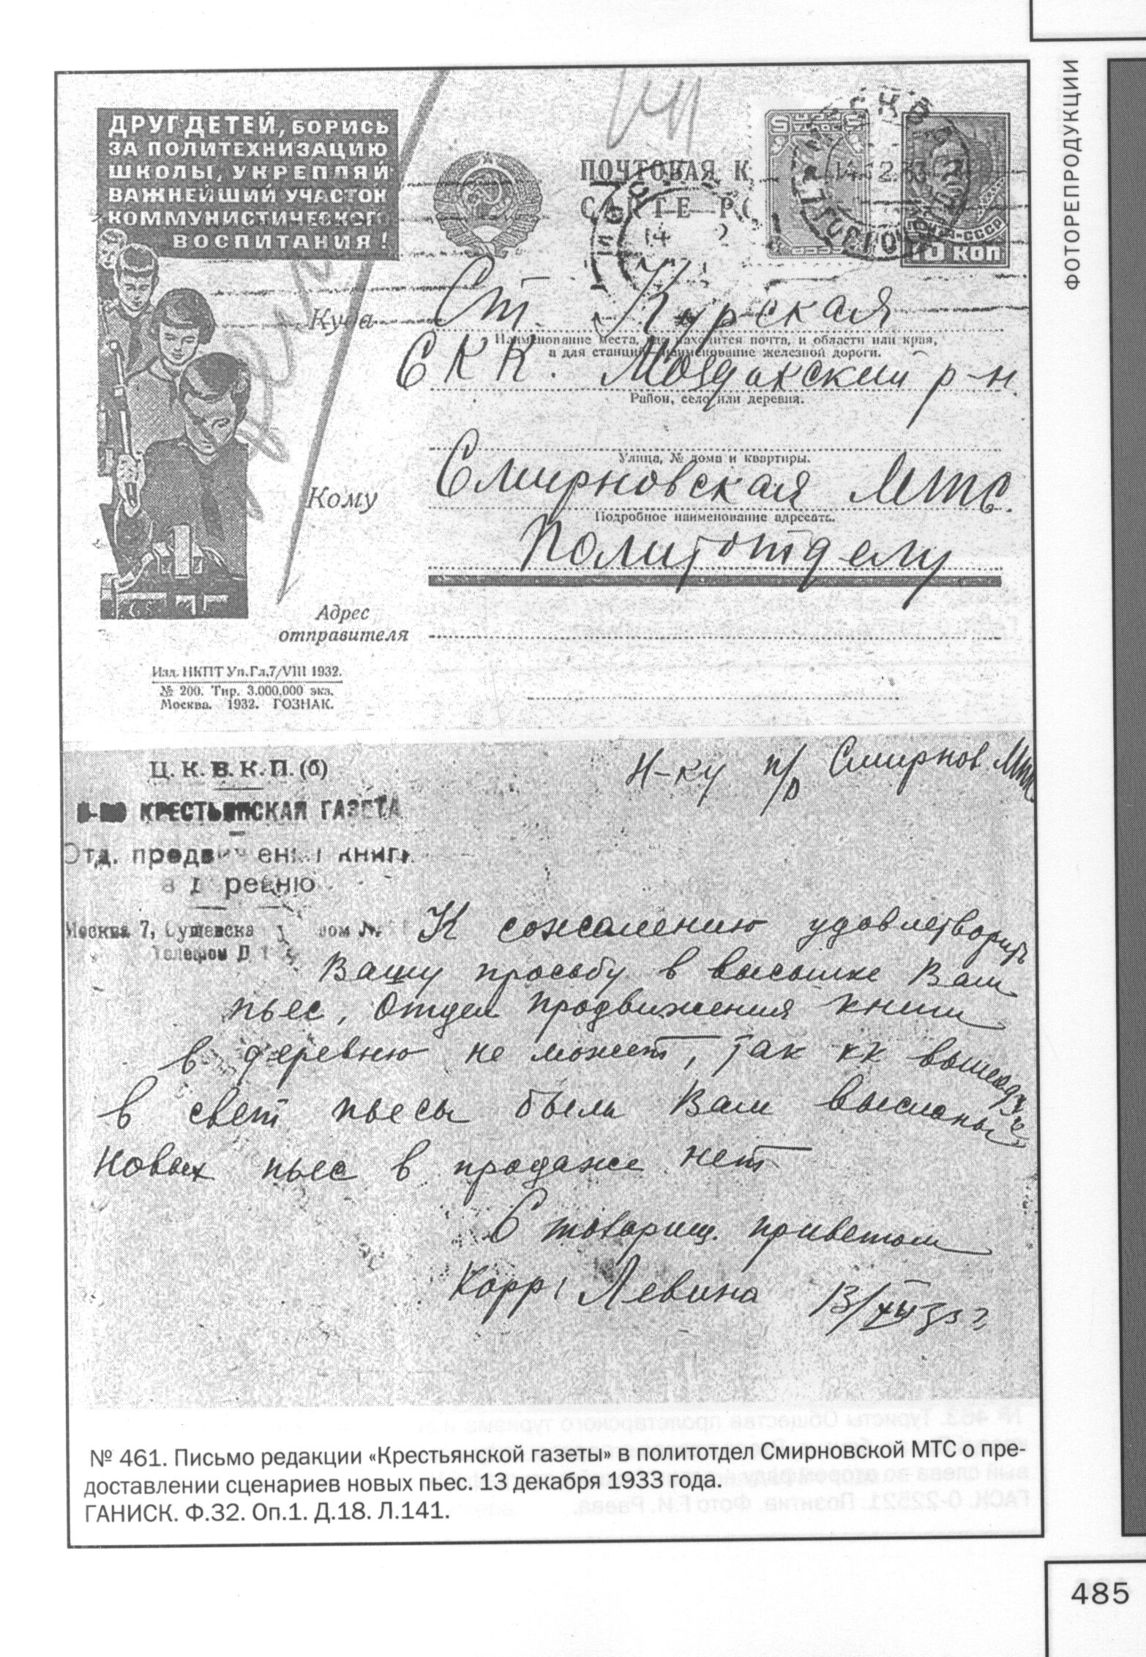 ФОТОРЕПРОДУКЦИИ
ДРУГ ДЕТЕЙ, БОРИСЬ
ЗА ПОЛИТЕХНИЗАЦИЮ
ШКОЛЫ, УКРЕПЛЯЙ
ВАЖНЕЙШИЙ УЧАСТОК
КОММУНИСТИЧЕСКОГО
ВОСПИТАНИЯ!
ПОЧТОВАЯ К
CARTE PO
МОСКВА
10 КОП
Куда
Ст. Курская
Наименование места, где находится почта, и области или края,
а для станций наименование железной дороги.
СКК. Моздокский р-н.
Район, село или деревня.
Улица, № дома и квартиры.
Кому
Смирновская МТС.
Подробное наименование адресата.
Политотделу
Адрес
отправителя
Изд. НКПТ Уп.Гл.7/VIII 1932.
№ 200. Тир. 3.000.000 экз.
Москва. 1932. ГОЗНАК.
Ц. К. В. К. П. (б)
КРЕСТЬЯНСКАЯ ГАЗЕТА
Отд. продвижения книги
в деревню
Москва 7, Сущевская
Телефон Д
Н-ку п/о Смирнов. МТС
К сожалению удовлетворить
Вашу просьбу в высылке Вам
пьес, Отдел продвижения книги
в деревню не может, так кк вышедшие
в свет пьесы были Вам высланы
Новых пьес в продаже нет
С товарищ. приветом
Корр. Левина 13/XII 33 г.
№ 461. Письмо редакции «Крестьянской газеты» в политотдел Смирновской МТС о пре-
доставлении сценариев новых пьес. 13 декабря 1933 года.
ГАНИСК. Ф.32. Оп.1. Д.18. Л.141.
485